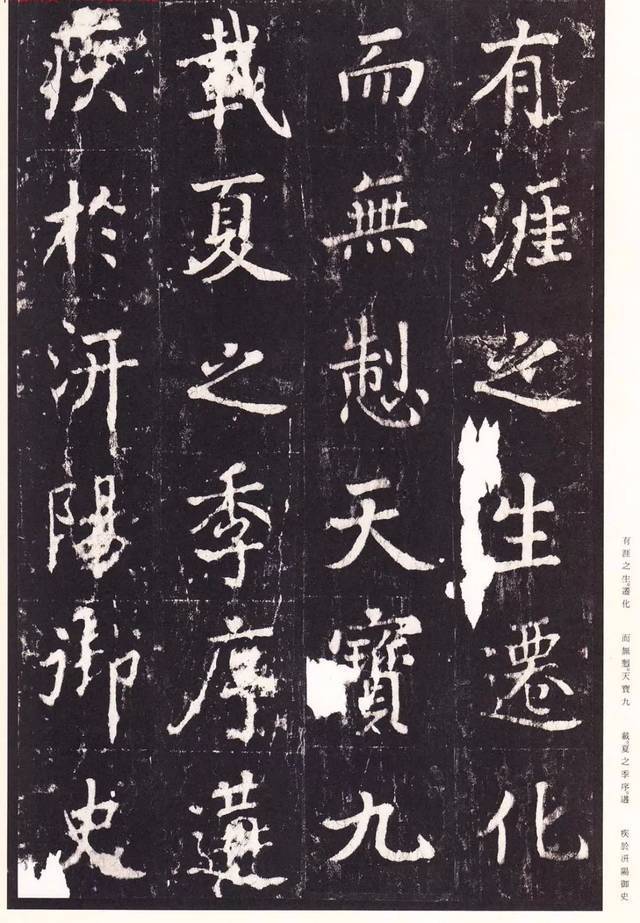 有涯之生遷化
而無天寶九
載夏之季序遘
疾於汧陽御史
有涯之生。遷化
而無。天寶九
載。夏之季序。遘
疾於汧陽御史